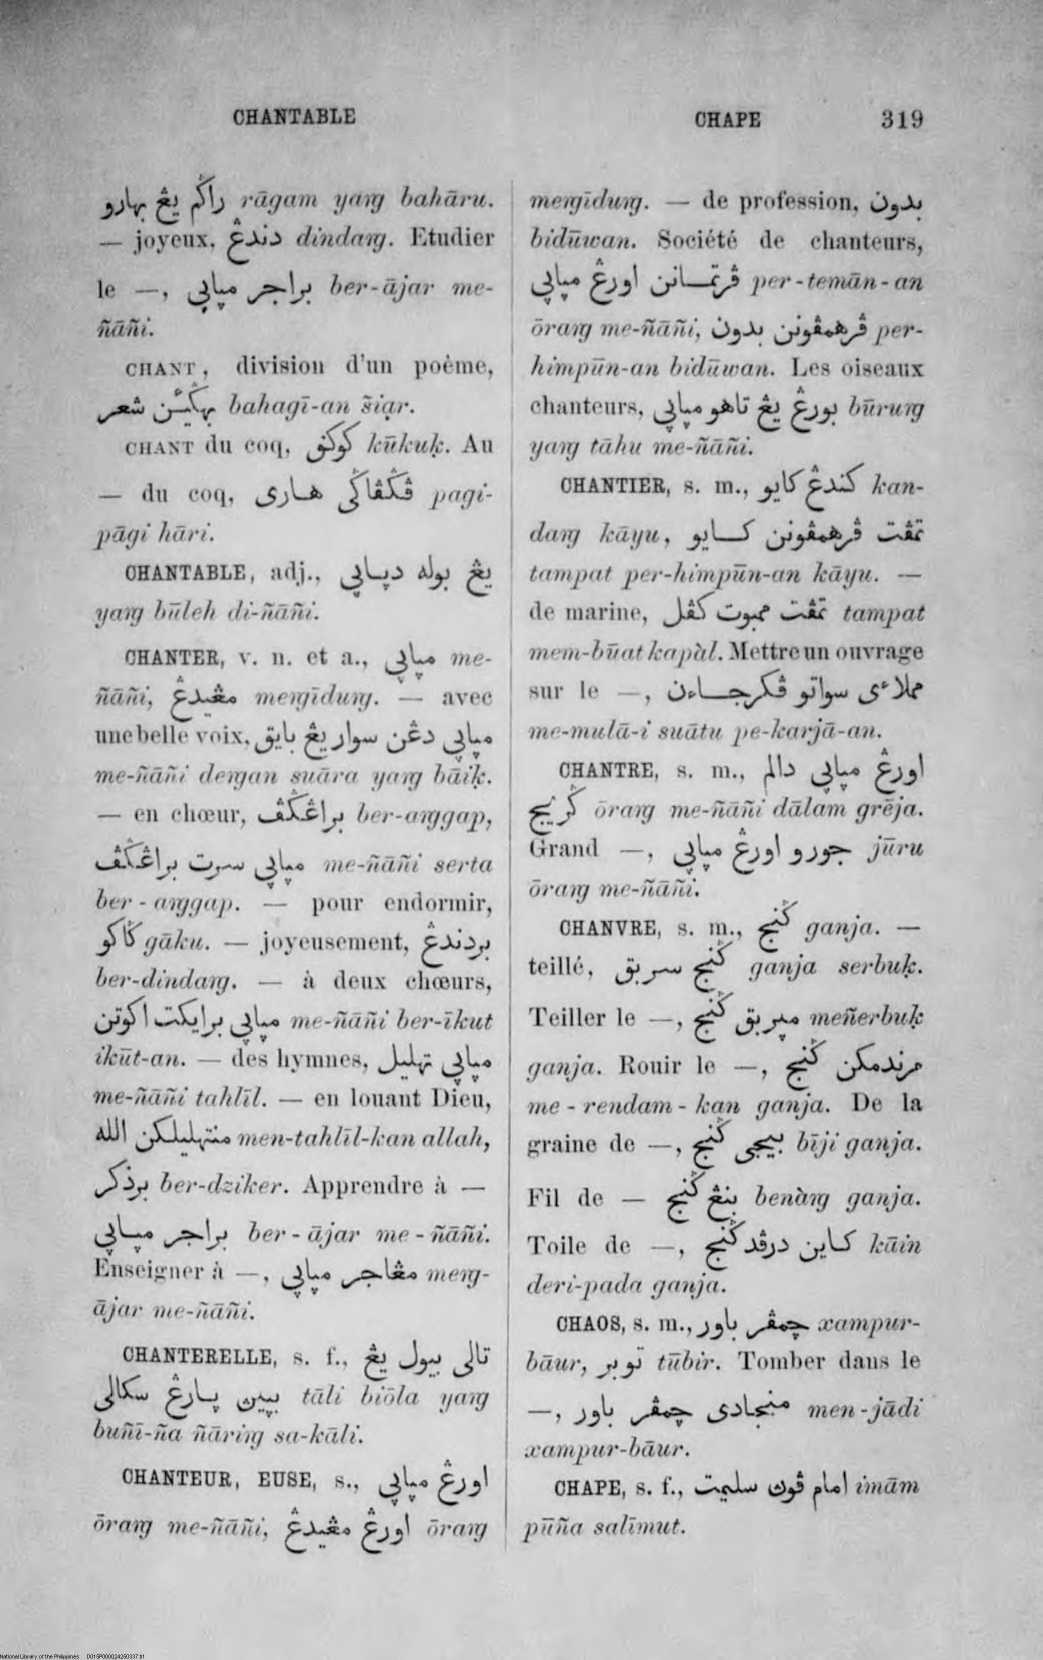 CHANTABLE
CHAPE 319
راݢم يڠ بهارو rāgam yaɳg bahāru.
— joyeux, دندڠ dindaɳg. Etudier
le —, براجر مڽاڽي ber-ājar me-
ñāñi.
CHANT, division d'un poème,
بهݢيئن شعر bahagī-an šiạr.
CHANT du coq, كوكق kūkuḳ. Au
— du coq, ڤݢڤاݢي هاري pagi-
pāgi hāri.
CHANTABLE, adj., يڠ بوله دڽاڽي
yaɳg būleh di-ñāñi.
CHANTER, v. n. et a., مڽاڽي me-
ñāñi, مڠيدڠ meɳgīduɳg. — avec
une belle voix, مڽاڽي دڠن سوار يڠ بايق
me-ñāñi deɳgan suāra yaɳg bāiḳ.
— en chœur, براڠݢڤ ber-aɳggap,
مڽاڽي سرت براڠݢڤ me-ñāñi serta
ber-aɳggap. — pour endormir,
ݢاكو gāku. — joyeusement, بردندڠ
ber-dindaɳg. — à deux chœurs,
مڽاڽي برايكت اكوتن me-ñāñi ber-īkut
ikūt-an. — des hymnes, مڽاڽي تهليل
me-ñāñi tahlīl. — en louant Dieu,
منتهليلكن الله men-tahlīl-kan allah,
برذكر ber-dziker. Apprendre à —
براجر مڽاڽي ber-ājar me-ñāñi.
Enseigner à —, مڠاجر مڽاڽي meɳg-
ājar me-ñāñi.
CHANTERELLE, s. f., تالي بيول يڠ
بڽين ڽارڠ سكالي tāli biōla yaɳg
buñī-ña ñāriɳg sa-kāli.
CHANTEUR, EUSE, s., اورڠ مڽاڽي
ōraɳg me-ñāñi, اورڠ مڠيدڠ ōraɳg
meɳgīduɳg. — de profession, بدون
bidūwan. Société de chanteurs,
ڤرتمانن اورڠ مڽاڽي per-temān-an
ōraɳg me-ñāñi, ڤرهمڤونن بدون per-
himpūn-an bidūwan. Les oiseaux
chanteurs, بورڠ يڠ تاهو مڽاڽي būruɳg
yaɳg tāhu me-ñāñi.
CHANTIER, s. m., كندڠ كايو kan-
daɳg kāyu, تمڤت ڤرهمڤونن كايو
tampat per-himpūn-an kāyu. —
de marine, تمڤت ممبوت كڤل tampat
mem-būat kapàl. Mettre un ouvrage
sur le —, مملاءي سواتو ڤكرجاءن
me-mulā-i suātu pe-karjā-an.
CHANTRE, s. m., اورڠ مڽاڽي دالم
ݢريج ōraɳg me-ñāñi dālam grēja.
Grand —, جورو اورڠ مڽاڽي jūru
ōraɳg me-ñāñi.
CHANVRE, s. m., ݢنج ganja. —
teillé, ݢنج سربق ganja serbuḳ.
Teiller le —, مڽربق ݢنج meñerbuḳ
ganja. Rouir le —, مرندمكن ݢنج
me-rendam-kan ganja. De la
graine de —, بيجي ݢنج bīji ganja.
Fil de — بنڠ ݢنج benàɳg ganja.
Toile de —, كاين درڤد ݢنج kāin
deri-pada ganja.
CHAOS, s. m., چمڤر باور xampur-
bāur, توبر tūbir. Tomber dans le
—, منجادي چمڤر باور men-jādi
xampur-bāur.
CHAPE, s. f., امام ڤوڽ سليمت imām
pūña salīmut.
National Library of the Philippines